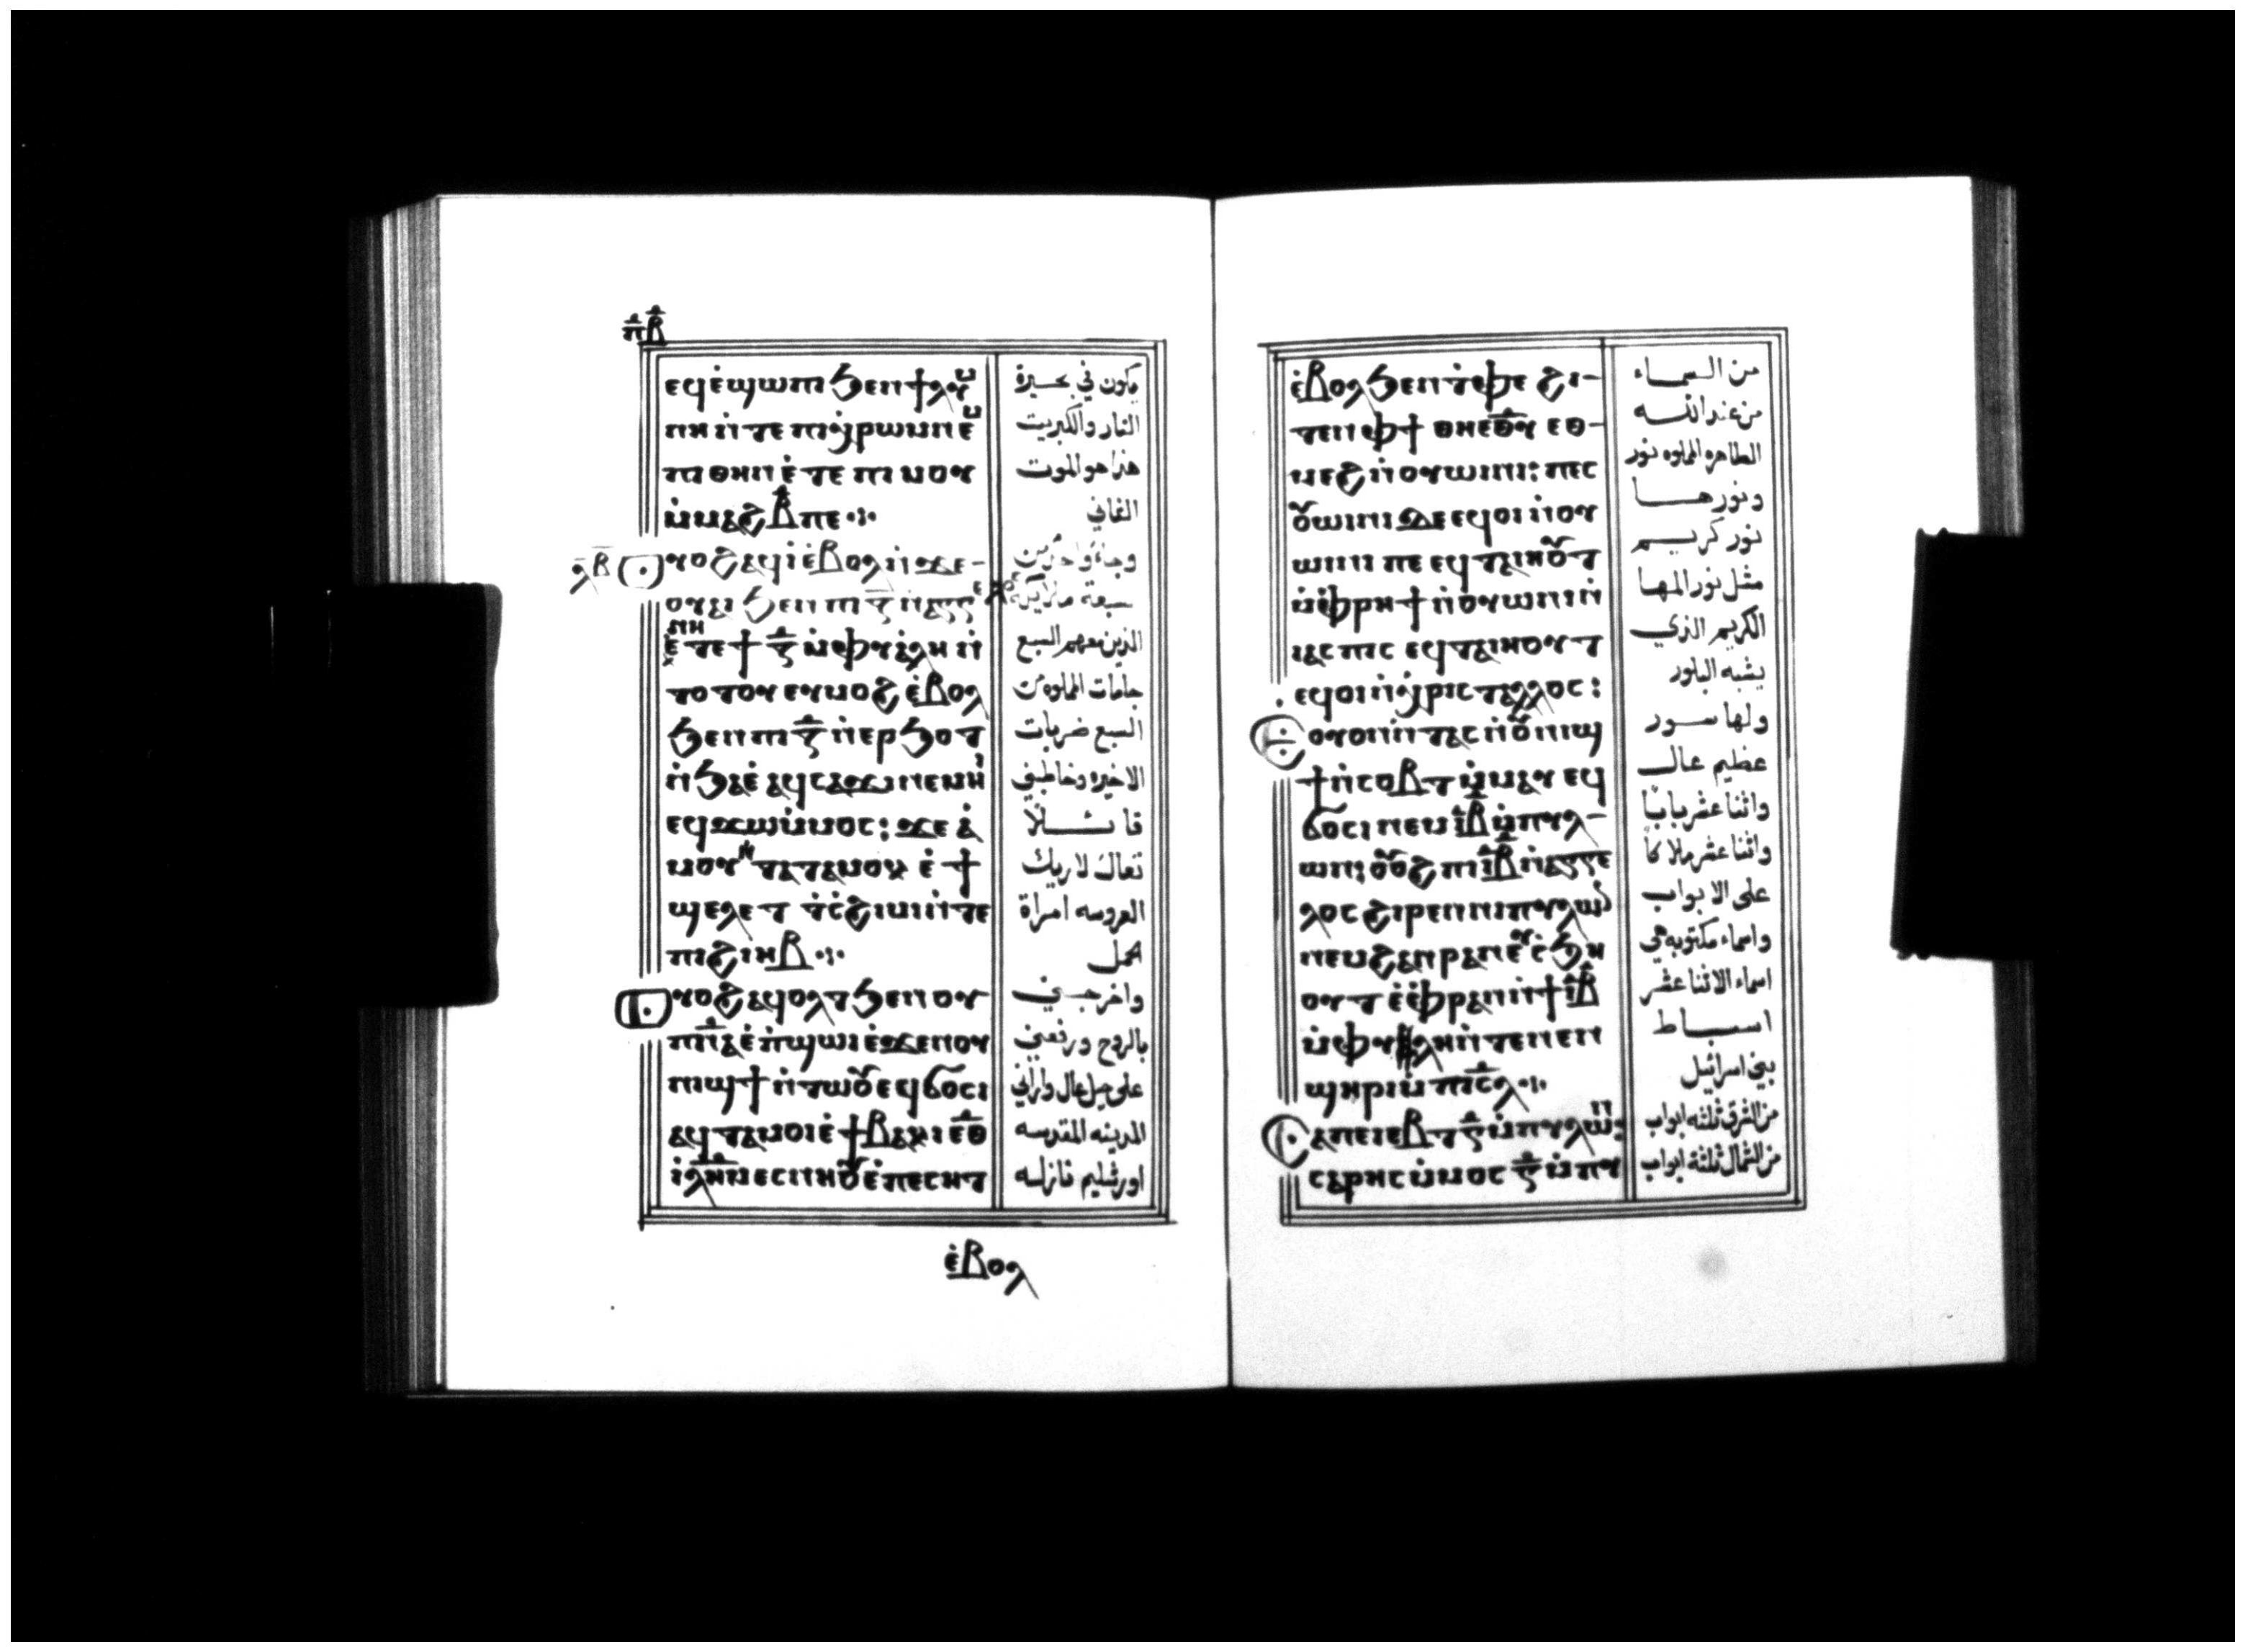 ⲡ̄ⲃ̄
ⲉϥⲉ̀ϣⲱⲡⲓ ϧⲉⲛ ϯⲗⲩⲙ
ⲛⲏ ⲛ̀ⲧⲉ ⲡⲓⲭ̀ⲣⲱⲙ ⲛⲉⲙ
ⲡⲓⲑⲏⲛ ⲉ̀ⲧⲉ ⲡⲓⲙⲟⲩ
ⲙ̀ⲙⲁϩⲃ̄ ⲡⲉ ⁘
ⲗⲃ ⲟⲩⲟϩ ⲁϥⲓ̀ ⲉ̀ⲃⲟⲗ ⲛ̀ϫⲉ-
ⲟⲩⲁⲓ ϧⲉⲛ ⲡⲓⲍ̄ ⲛ̀ⲁⲅⲅⲉ
ⲉ̀ⲧⲉ ϯⲍ̄ ⲙ̀ⲫⲩⲁ̀ⲗⲏ ⲛ̀
ⲧⲟⲧⲟⲩ ⲉⲩⲙⲟϩ ⲉ̀ⲃⲟⲗ
ϧⲉⲛ ⲡⲓⲍ̄ ⲛ̀ⲉⲣϧⲟⲧ
ⲛ̀ϧⲁⲉ̀ ⲁϥⲥⲁϫⲓ ⲛⲉⲙⲏⲓ̀
ⲉϥϫⲱ ⲙ̀ⲙⲟⲥ: ϫⲉ ⲁ̀
ⲙⲟⲩ ⲛ̀ⲧⲁⲧⲁⲙⲟⲕ ⲉ̀ϯ
ϣⲉⲗⲉⲧ ⲧ̀ⲥ̀ϩⲓⲙⲓ ⲛ̀ⲧⲉ
ⲡⲓϩⲓⲏⲃ ⁘
ⲟⲩⲟϩ ⲁϥⲟⲗⲧ ϧⲉⲛ ⲟⲩ
ⲡ̄ⲛ̄ⲁ̄ ⲉ̀ⲡ̀ϣⲱⲓ ⲉ̀ϫⲉⲛ ⲟⲩ
ⲛⲓϣϯ ⲛ̀ⲧⲱⲟⲩ ⲉϥϭⲟⲥⲓ
ⲁϥⲧⲁⲙⲟⲓ ⲉ̀ϯⲃⲁⲕⲓ ⲉ̄ⲑ̄ⲩ̄
ⲓ̄ⲗ̄ⲏ̄ⲙ̄ ⲉⲥⲛⲏⲟⲩ ⲉ̀ⲡⲉⲥⲏⲧ
ⲉ̀ⲃⲟⲗ
يكون في بحيرة
النار والكبريت
هذا هو الموت
الثاني
وجاء واحد من
سبعة ملايكة
الذين معهم السبع
جامات المملوه من
السبع ضربات
الاخيره وخاطبني
قائلاً
تعال لاريك
العروسه امراة
الحمل
واخرجني
بالروح ورفعني
على جبل عال واراني
المدينه المقدسه
اورشليم نازله
ⲉ̀ⲃⲟⲗ ϧⲉⲛ ⲧ̀ⲫⲉ ϩⲓ-
ⲧⲉⲛ ⲫϯ ⲑⲏⲉ̄ⲑ̄ⲩ̄ ⲉⲑ-
ⲙⲉϩ ⲛ̀ⲟⲩⲱⲓⲛⲓ: ⲡⲉⲥ
ⲟⲩⲱⲓⲛⲓ ϫⲉ ⲉϥⲟⲓ ⲛ̀ⲟⲩ
ⲱⲓⲛⲓ ⲡⲉ ⲉϥⲧⲁⲓⲏⲟⲩⲧ
ⲙ̀ⲫ̀ⲣⲏϯ ⲛ̀ⲟⲩⲱⲛⲓ ⲛ̀
ⲓⲁⲥⲡⲓⲥ ⲉϥⲧⲁⲓⲏⲟⲩⲧ
ⲉϥⲟⲓ ⲛ̀ⲭ̀ⲣⲓⲥⲧⲁⲗⲗⲟⲥ:
ⲟⲩⲟⲛ ⲛ̀ⲧⲁⲥ ⲛ̀ⲟⲩⲛⲓϣ
ϯ ⲛ̀ⲥⲟⲃⲧ ⲙ̀ⲙⲁⲩ ⲉϥ
ϭⲟⲥⲓ ⲛⲉⲙ ⲓ̄ⲃ̄ ⲙ̀ⲡⲩⲗ-
ⲱⲛ: ⲟⲩⲟϩ ⲡⲓⲓ̄ⲃ̄ ⲛ̀ⲁⲅⲅⲉ
ⲗⲟⲥ ϩⲓⲣⲉⲛ ⲛⲓⲡⲩⲗⲱⲛ
ⲛⲉⲙ ϩⲁⲛⲣⲁⲛ ⲉⲩⲥ̀ϧⲏ
ⲟⲩⲧ ⲉ̀ⲉ̀ⲫⲣⲁⲛ ⲛ̀ϯⲓ̄ⲃ̄
ⲙ̀ⲫⲩⲗⲏ ⲛ̀ⲧⲉ ⲛⲉⲛ
ϣⲏⲣⲓ ⲙ̀ⲡⲓ̄ⲥ̄ⲗ̄ ⁘
ⲁⲡⲉⲓⲉⲃⲧ ⲅ̄ ⲙ̀ⲡⲩⲗⲱⲛ:
ⲥⲁⲣⲏⲥ ⲙ̀ⲙⲟⲥ ⲅ̄ ⲙ̀ⲡⲩ
من السماء
من عند الله
الطاهره المملوه نور
ونورها
نور كريم
مثل نور المها
الكريم الذي
يشبه البلور
ولها سور
عظيم عال
واثنا عشر بابا
واثنا عشر ملاكا
على الابواب
واسماء مكتوبه هي
اسماء الاثنا عشر
اسباط
بني اسرائيل
من الشرق ثلثه ابواب
من الشمال ثلثة ابواب